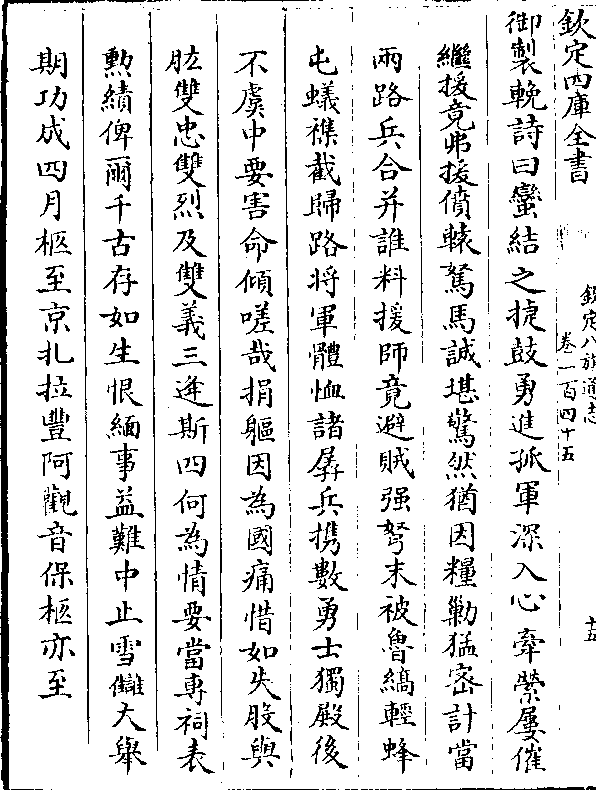 欽定四庫全書
欽定八旗通志
卷一百四十五
十五
御製輓詩曰蠻結之捷鼓勇進孤軍深入心牽縈屢催
繼援竟弗援僨轅駑馬誠堪驚然猶因糧勦猛密計當
兩路兵合并誰料援師竟避賊强弩末被魯縞輕蜂
屯蟻襍截歸路将軍體恤諸孱兵携數勇士獨殿後
不虞中要害命傾嗟哉捐軀因為國痛惜如失股與
肱雙忠雙烈及雙義三逢斯四何為情要當專祠表
勲績俾爾千古存如生恨緬事益難中止雪讎大舉
期功成四月柩至京扎拉豐阿觀音保柩亦至